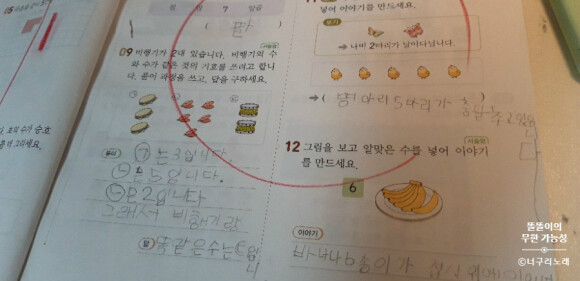 7
(짝
09 비행기가 2대 있습니다. 비행기의 수
와 수가 같은 것의 기호를 쓰려고 합니
다. 풀이 과정을 쓰고, 답을 구하세요.
서술형
풀이
㉠는3입니다.
㉡은 5입니다.
㉢은2입니다
그래서 비행기랑
답 똑같은수는㉢입
니
넣어 이야기를 만드세요.
보기
→ 나비 2마리가 날아다닙니다.
→ (병아리5마리가 춤을추고있습
12 그림을 보고 알맞은 수를 넣어 이야기
를 만드세요.
서술형
6
이야기
바나나6송이가 접시위에
똘똘이의
무한 가능성
©너구리노래